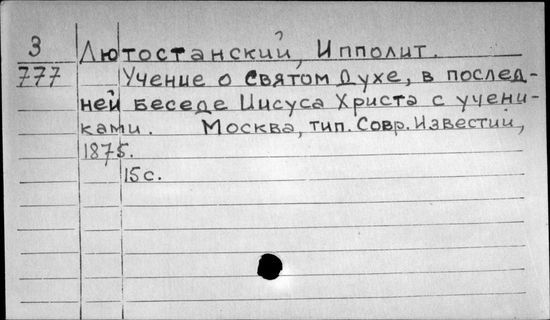 3
777
Лютостанский, Ипполит.
Учение о Святом Духе, в послед-
ней беседе Иисуса Христа с учени-
ками. Москва, тип. Совр. Известий,
1875.
15с.